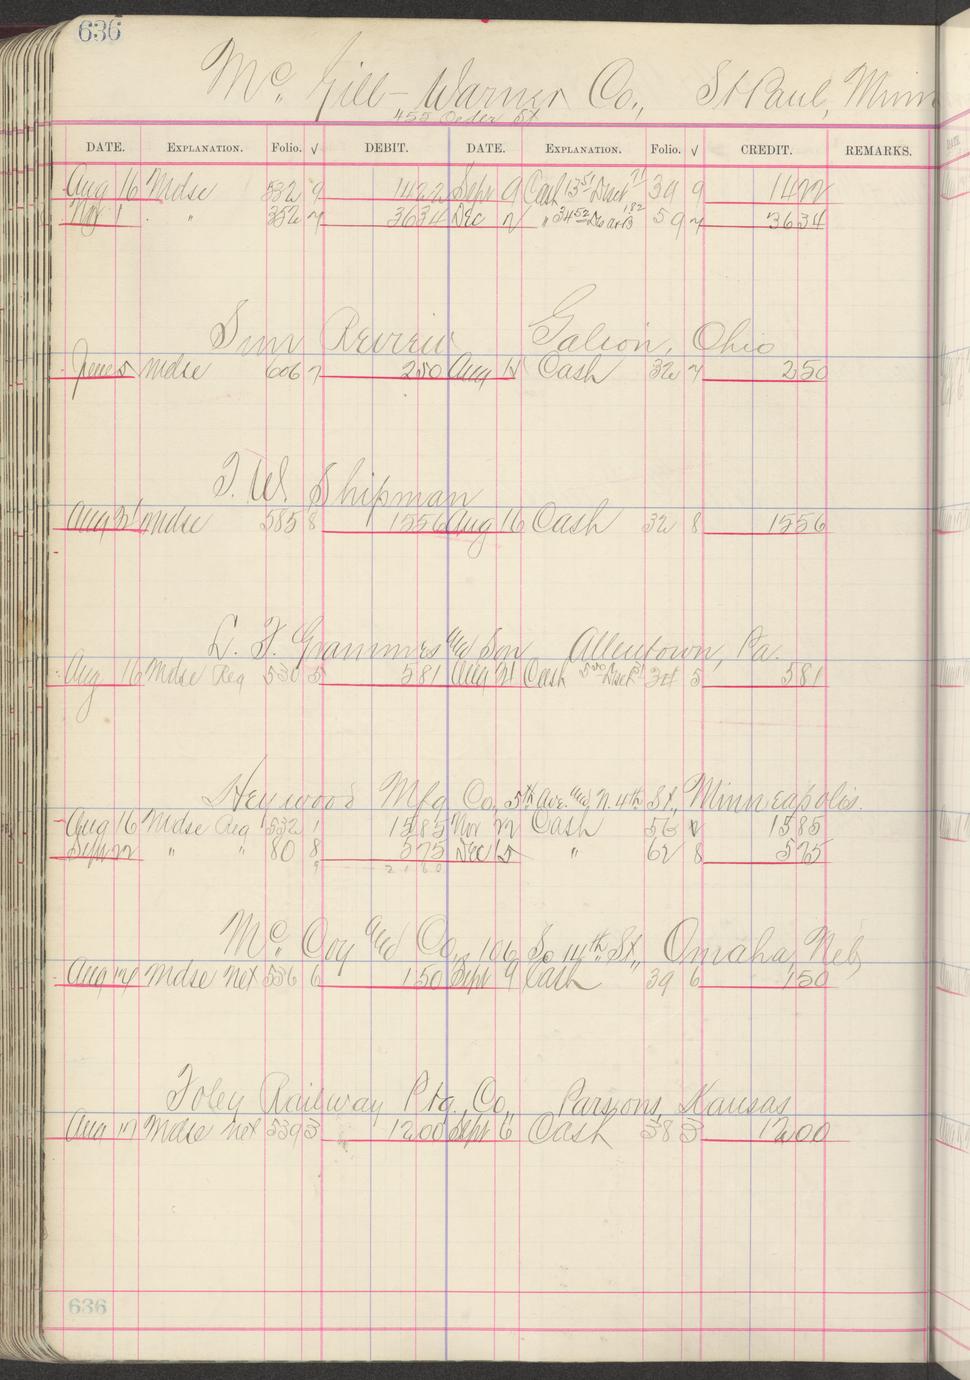 636
Mc. Gill-Warner Co., St Paul, Minn
455 Cedar St
DATE. EXPLANATION. Folio. √ DEBIT. DATE. EXPLANATION. Folio. √ CREDIT. REMARKS.
Aug 16 Mdse 532 9 1422 Sept 9 Cash 13 51 Disct 71 39 9 1422
Nov 1 " 352 7 3634 Dec 2 " 34 52 182 59 7 3634
Sun Review Galion, Ohio
June 5 Mdse 606 7 250 Aug 15 Cash 32 7 250
T. W. Shipman
Aug 31 Mdse 585 8 1556 Aug 16 Cash 32 8 1556
L. F. Grammes and Son Allentown, Pa.
Aug 16 Mdse Reg 530 5 581 Aug 21 Cash Disct 34 5 581
Heywood Mfg Co., 5th Ave. and N. 4th St., Minneapolis.
Aug 16 Mdse Reg 532 1 1585 Nov 22 Cash 56 1585
Sept 22 " " 80 8 575 Dec 15 " 62 8 575
9 2160
Mc. Coy and Co., 106 So 14th St., Omaha, Neb
Aug 17 Mdse Net 536 6 150 Sept 9 Cash 39 6 150
Foley Railway Ptg. Co., Parsons, Kansas
Aug 17 Mdse Net 539 3 1200 Sept 6 Cash 38 3 1200
636